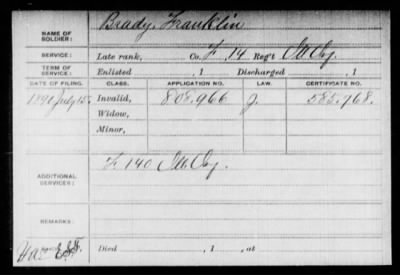 NAME OF SOLDIER: Brady, Franklin
SERVICE: Late rank, Co. F, 14 Reg't Ill Cav.
TERM OF SERVICE: Enlisted , 1 Discharged , 1
DATE OF FILING. CLASS. APPLICATION NO. LAW. CERTIFICATE NO.
1890 July 15. Invalid, 808.966 J. 585.768.
Widow,
Minor,
ADDITIONAL SERVICES: F 140
REMARKS:
Died , 1 , at